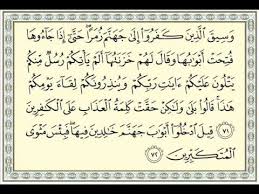 وَسِيقَ الَّذِينَ كَفَرُوا إِلَىٰ جَهَنَّمَ زُمَرًا حَتَّىٰ إِذَا جَاءُوهَا
فُتِحَتْ أَبْوَابُهَا وَقَالَ لَهُمْ خَزَنَتُهَا أَلَمْ يَأْتِكُمْ رُسُلٌ مِنْكُمْ
يَتْلُونَ عَلَيْكُمْ آيَاتِ رَبِّكُمْ وَيُنْذِرُونَكُمْ لِقَاءَ يَوْمِكُمْ
هَٰذَا قَالُوا بَلَىٰ وَلَٰكِنْ حَقَّتْ كَلِمَةُ الْعَذَابِ عَلَى الْكَافِرِينَ
٧١ قِيلَ ادْخُلُوا أَبْوَابَ جَهَنَّمَ خَالِدِينَ فِيهَا فَبِئْسَ مَثْوَى
الْمُتَكَبِّرِينَ ٧٢